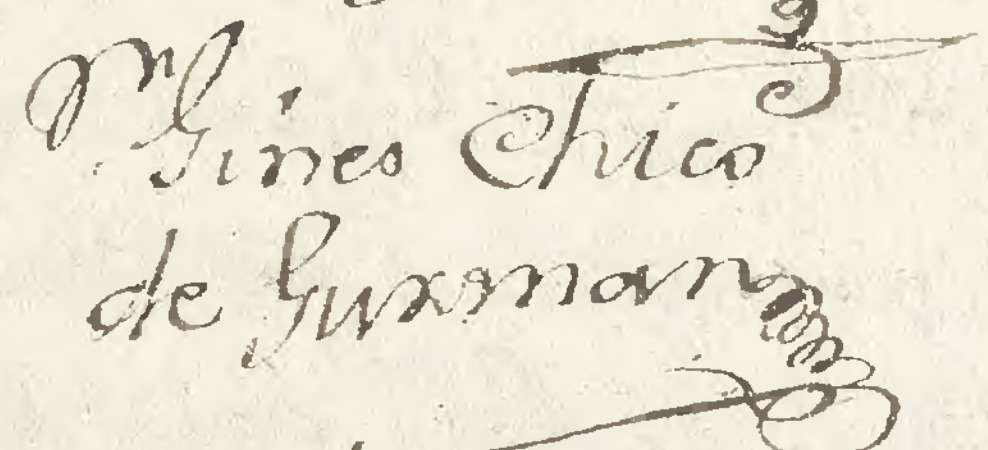 Gines Chico
de Guzman